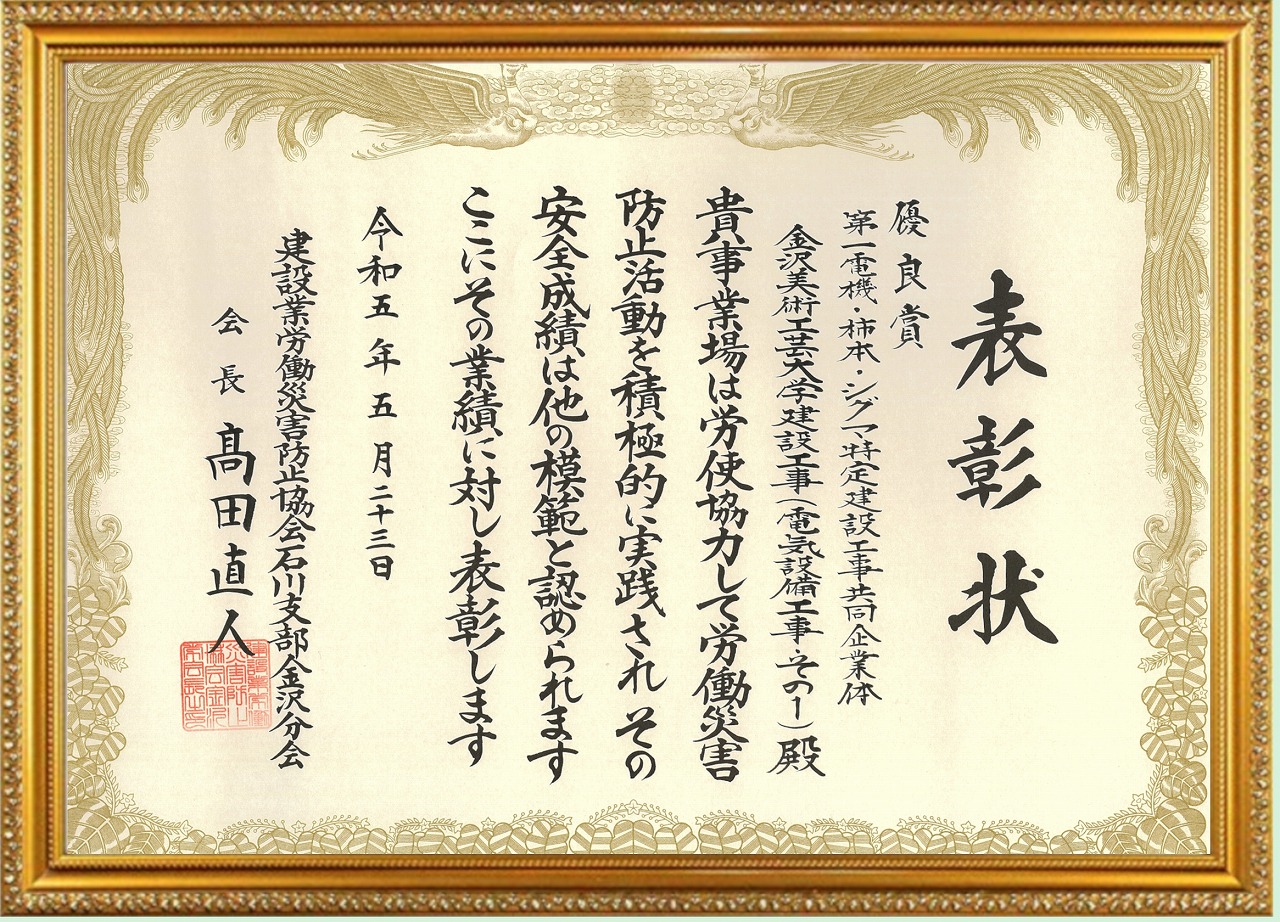 表彰状
優良賞
第一電機・柿本・シグマ特定建設工事共同企業体
金沢美術工芸大学建設工事(電気設備工事・その1)殿
貴事業場は労使協力して労働災害
防止活動を積極的に実践され その
安全成績は他の模範と認められます
ここにその業績に対し表彰します
令和五年五月二十三日
建設業労働災害防止協会石川支部金沢分会
会長 髙田直人